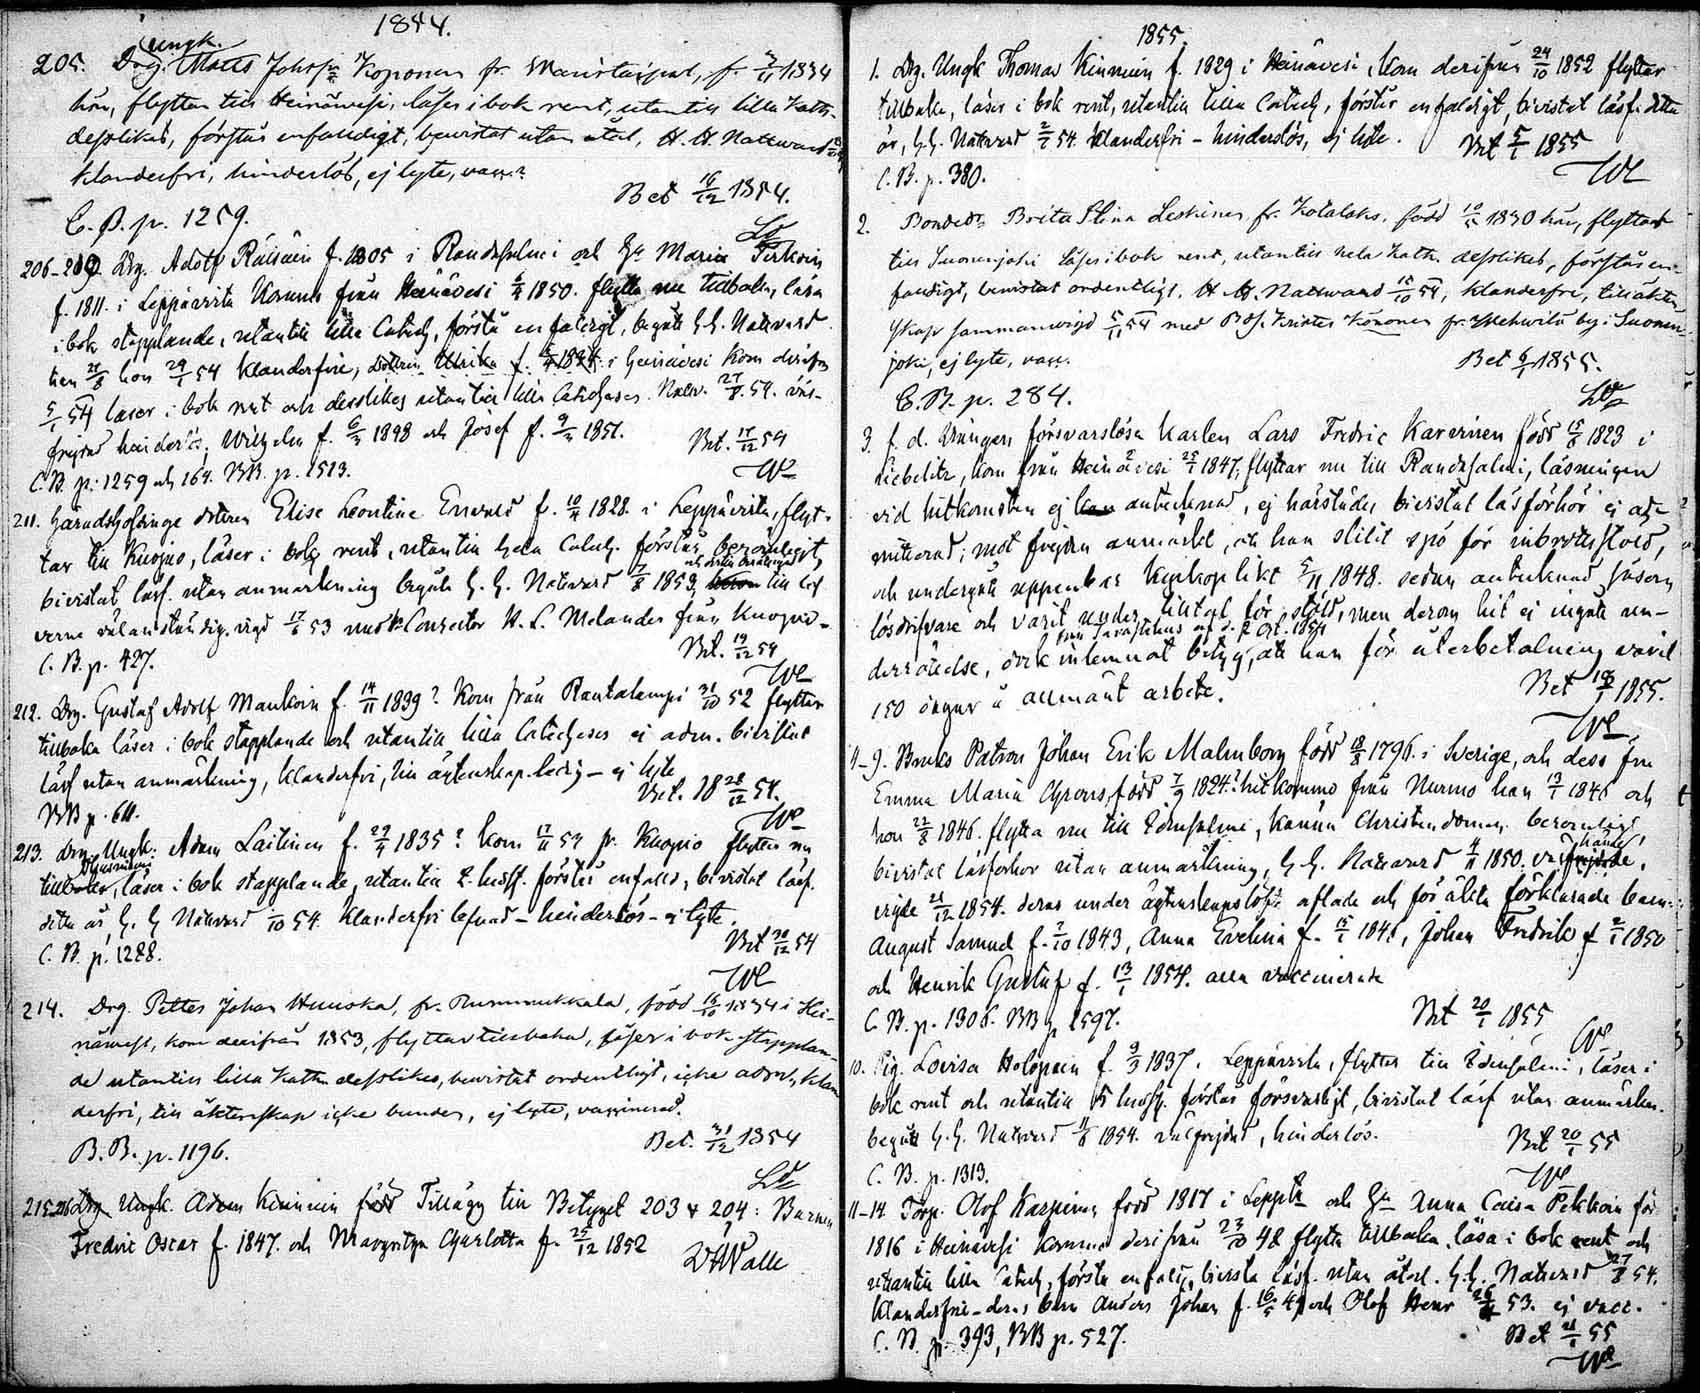 1854.
205. Drg. Ungk. Matts Johss: Koponen fr. f. 3/11 1834
här, flyttar till Heinäwesi, läser i bok rent, utantill lilla Kath.
desslikes, förstår enfaldigt, bewistat utan åtal, H. H. Nattward
klanderfri, hinderlös, ej lyte, vacc.?
Bet 16/12 1854.
C. B. p. 1259.
206-209 Drg. Adolf Räisäin f. 1805 i Randasalmi och Hu Maria
f. 1811. i Leppävirta Komna från Heinävesi 1850. flytta nu tillbaka, läsa
i bok stapplande, utantill lilla Catech, förstå enfaldigt, begått H.H. Nattvard
han 21/8 hon 29/1 54 klanderfrie, dottren Ulrika f. i Heinävesi kom derifrån
5/1 54 läser i bok rent och desslikes utantill lilla Catechesen. Nattv. 27/8. 54. väl-
frejdad hinderlös; Wilhelm f. 6/3 1848 och Josef f. 9/3 1851.
Bet. 17/12 54
C. B. p: 1259 och 164. BB. p. 1513.
211. Häradshöfdinge dottren Elise Leontine Enwald f. 10/4 1828. i Leppävirta, flyt-
tar till Kuopio, läser i bok rent, utantill hela Catech. förstår berömligt,
bivistat läsf. utan anmärkning begått H. H. Nattvard 7/8 1853, till lef-
verne välanständig, vigd 17/6 53 med Conrector K. L. Melander från Kuopio-
C. B. p. 427.
Bet. 19/12 54
212. Drg. Gustaf Adolf Mankoin f. 14/11 1839? Kom från Rautalampi 31/10 52 flyttar
tillbaka läser i bok stapplande och utantill lilla Catechesen ej adm. bivistat
läsf utan anmärkning, klanderfri, till ägtenskap ledig - ej lyte
Bet. 18 28/12 54.
BB p. 611.
213. Drg. Ungk: Adam Laitinen f. 1835? kom 17/11 54 fr. Kuopio flyttar nu
läser i bok stapplande, utantill 2. hufst. förstår enfald, bivistat läsf.
detta år H. H Nattvard 54. Klanderfri lefnad - hinderlös - ej lyte.
Bet 30/12 54
C. B. p. 1288.
214. Drg. Petter Johan Huuska, fr. Rummukkala, född 16/10 1834 i Hei-
näwesi, kom derifrån 1853, flyttar tillbaka, läser i bok stapplan-
de utantill lilla Kath. desslikes, bewistat ordentligt, icke adm., klan-
derfri, till äktenskap icke bunden, ej lyte, vaccinerad.
Bet. 31/12 1854
B. B. p. 1196.
215-216 Drg. Ungk. Adam Kinnuin född Tillägg till Betyget 203 & 204: Barnen
Fredric Oscar f. 1847. och Margretha Charlotta f. 25/12 1852
1855.
1. Drg. Ungk Thomas Kinnuin f. 1829 i Heinävesi, kom derifrån 24/10 1852 flyttar
tillbaka, läser i bok rent, utantill lilla Catech, förstår enfaldigt, bivistat läsf. detta
år, H.H. Nattvard 2/7 54. Klanderfri - hinderslös, ej lyte.
Bet 5/1 1855
C. B. p. 380.
2. Bondedr Brita Stina Leskinen fr. Kotalaks. född 10/5 1830 här, flyttar
till Suonenjoki läser i bok rent, utantill hela Kath. desslikes, förstår en-
faldigt, bewistat ordentligt. H. H. Nattward 15/10 54, klanderfri, till äkten-
skap sammanwigd 5/11 54 med Bds. Krister Könönen fr. by i Suonen-
joki, ej lyte, vacc.
Bet 6/1 1855.
C. B. p. 284.
3. f. d. Drängen försvarslösa karlen Lars Fredric Karvinen född 15/8 1823 i
Liebelitz, kom från Heinävesi 25/2 1847, flyttar nu till Randasalmi, läsningen
vid hitkomsten ej antecknad, ej härstädes bivistat läsförhör ej ad-
mitterad; mot frejden anmärkt, att han slitit spö för inbrottsstöld,
och undergått uppenbar kyrkoplikt 5/11 1848. sedan antecknad såsom
lösdrifvare och varit under tilltal för stöld, men derom hit ej ingått un-
derrättelse, dock inlemnat betyg, från Tavastehus af d. 2 Oct. 1854 att han för återbetalning varit
150 dagar å allmänt arbete.
Bet 18/1 1855.
4-9. Bruks Patron Johan Erik Malmborg född 18/8 1796. i Sverige, och dess fru
Emma Maria född 7/9 1824? hitkomne från Nurmo han 13/1 1846 och
hon 22/8 1846. flytta nu till Idensalmi, kunna Christendomen berömligt,
bivistat läsförhör utan anmärkning, H. H. Nattvard 4/11 1850. välkände,
vigde 21/12 1854. deras under ägtenskapslöfte aflade och för äkta förklarade barn:
August Samuel f. 7/10 1843, Anna Evelina f. 15/1 1846, Johan Fredrik f 2/1 1850
och Henrik Gustaf f. 13/1 1854. alla vaccinerade
C. B. p. 1306. BB p 1597.
Bet 20/1 1855
10. Pig. Lovisa Holopain f. 9/3 1837. Leppävirta, flyttar till Idensalmi, läser i
bok rent och utantill 5 hufst. förstår försvarligt, bivistat läsf utan anmärkn.
begått H. H. Nattvard 11/6 1854. välfrejdad, hinderlös.
Bet 20/1 55
C. B. p. 1313.
11-14 Torp. Olof Karpinen född 1817 i Leppvta och Hu Anna Caisa Pekkain föd
1816 i Heinävesi komne derifrån 23/10 48 flytta tillbaka, läsa i bok rent och
utantill lilla Catech, förstå enfald, bivista läsf. utan åtal. H.H. Nattvard 27/8 54.
Klanderfrie - deras barn Anders Johan f. 16/5 47 och Olof Henr 53. ej vacc.
C. B. p. 393, BB p. 527.
Bet 21/1 55